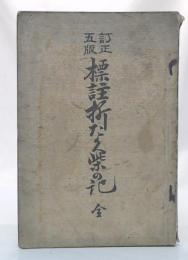 訂正
五版
標註折たく柴の記 全